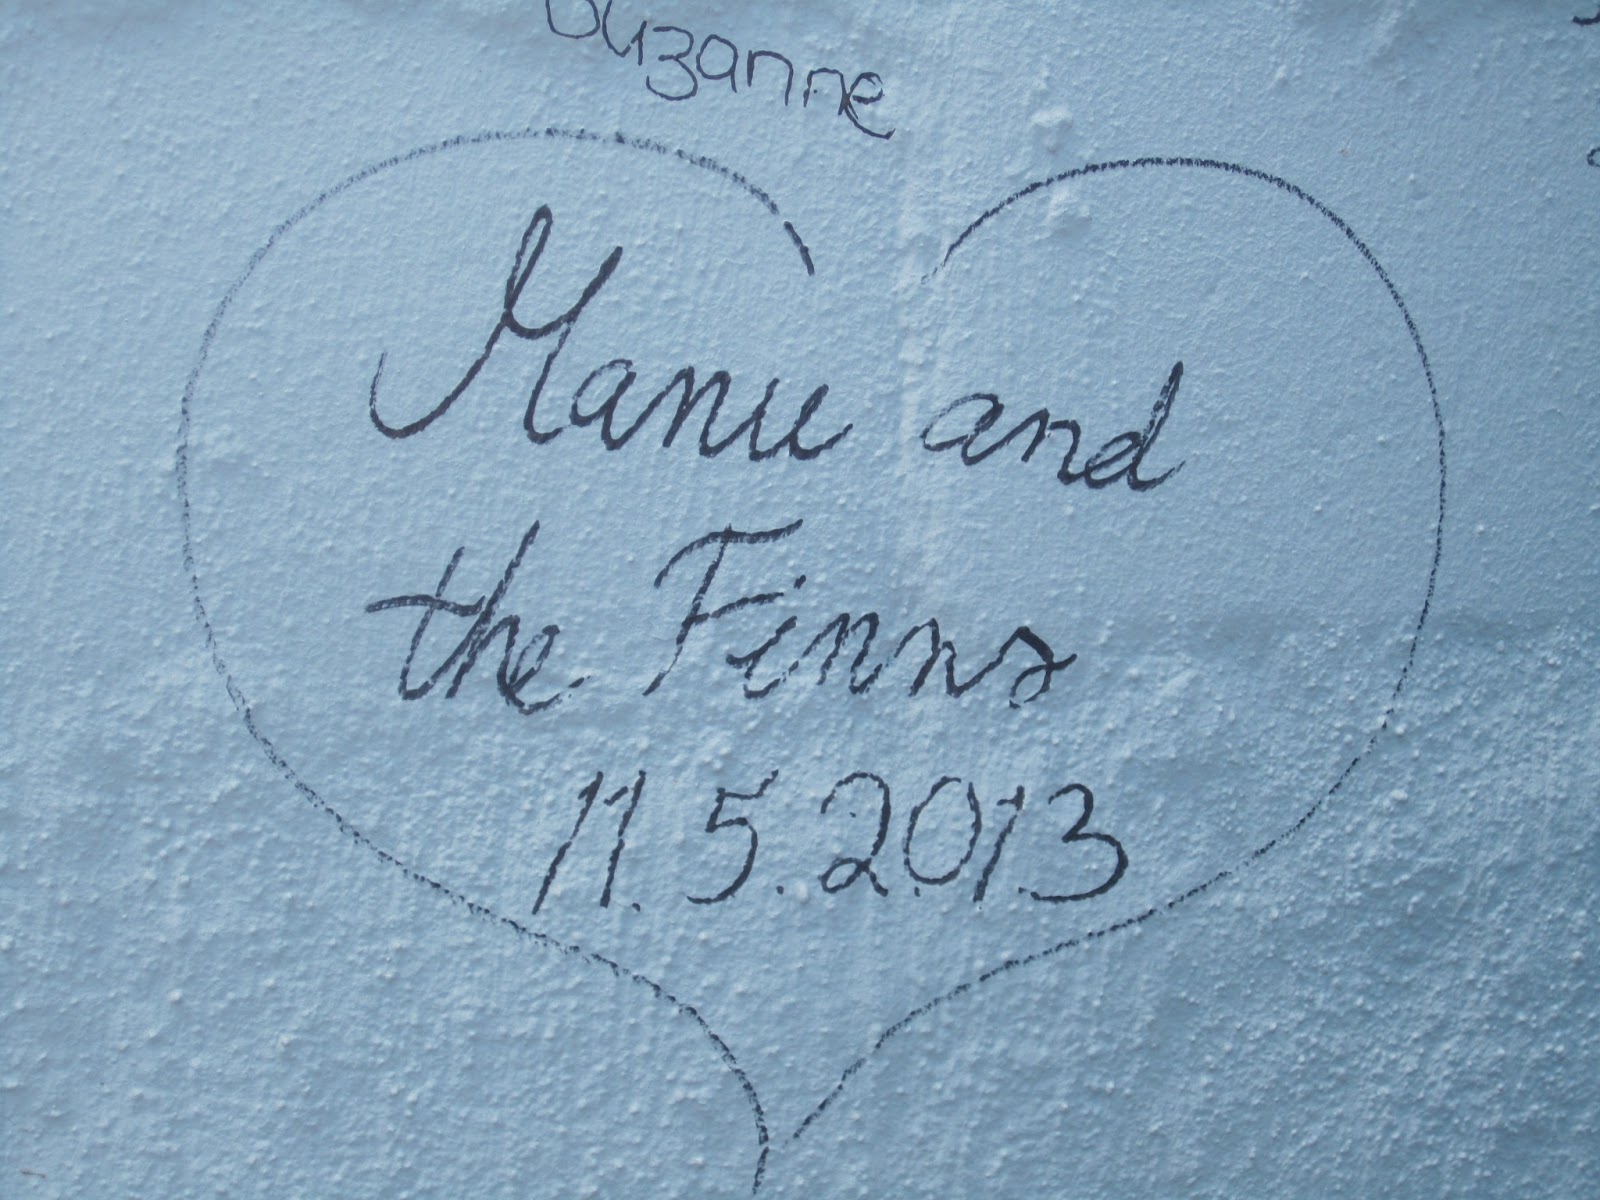 Suzanne
Manu and
the Finns
11.5.2013